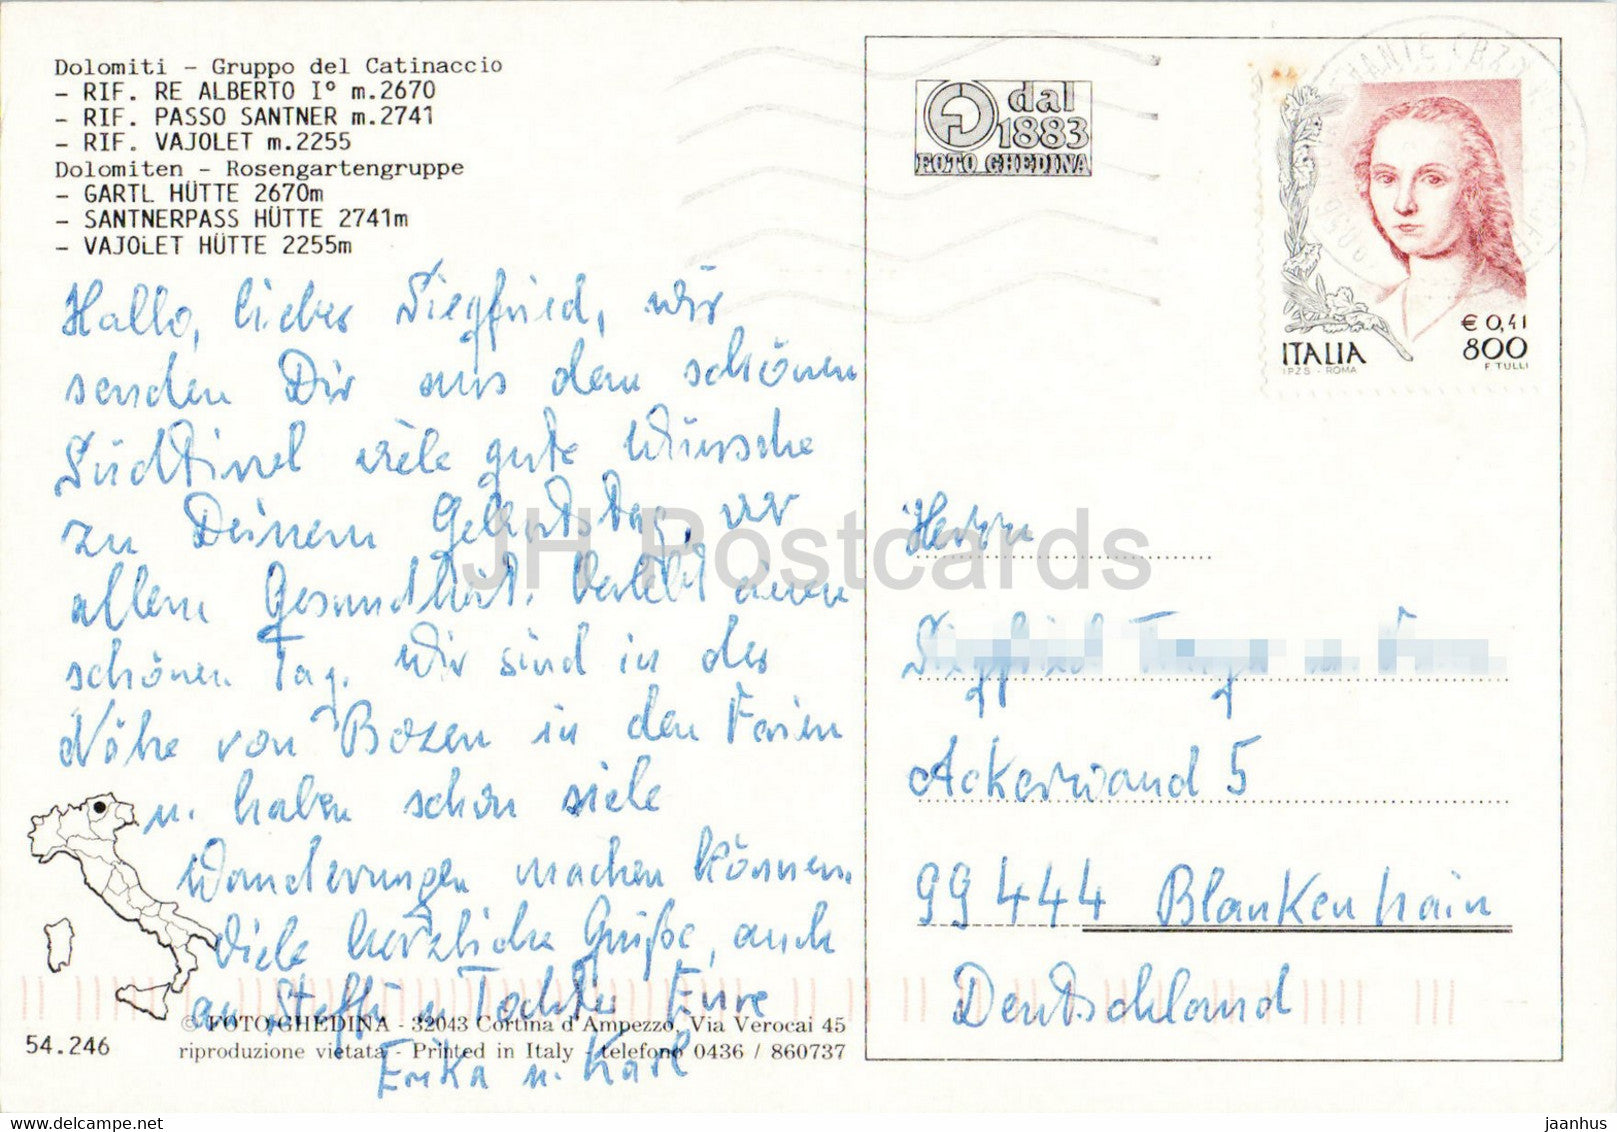 Dolomiti - Gruppo del Catinaccio
- RIF. RE ALBERTO I° m.2670
- RIF. PASSO SANTNER m.2741
- RIF. VAJOLET m.2255
Dolomiten - Rosengartengruppe
- GARTL HÜTTE 2670m
- SANTNERPASS HÜTTE 2741m
- VAJOLET HÜTTE 2255m
Hallo, lieber Siegfried, wir
senden Dir aus dem schönen
Südtirol viele gute Wünsche
zu Deinem Geburtstag, vor
allem Gesundheit. Verlebt einen
schönen Tag. Wir sind in der
Nähe von Bozen in den Ferien
u. haben schon viele
Wanderungen machen können.
Viele herzliche Grüße, auch
an Steffi u Tochter Eure
Erika u. Karl
© FOTO GHEDINA - 32043 Cortina d'Ampezzo, Via Verocai 45
riproduzione vietata - Printed in Italy - telefono 0436 / 860737
54.246
dal
1883
FOTO GHEDINA
€ 0,41
ITALIA 800
I.P.Z.S. - ROMA F. TULLI
Herrn
Siegfried
Ackerwand 5
99444 Blankenhain
Deutschland
JH Postcards
delcampe.net
jaanhus